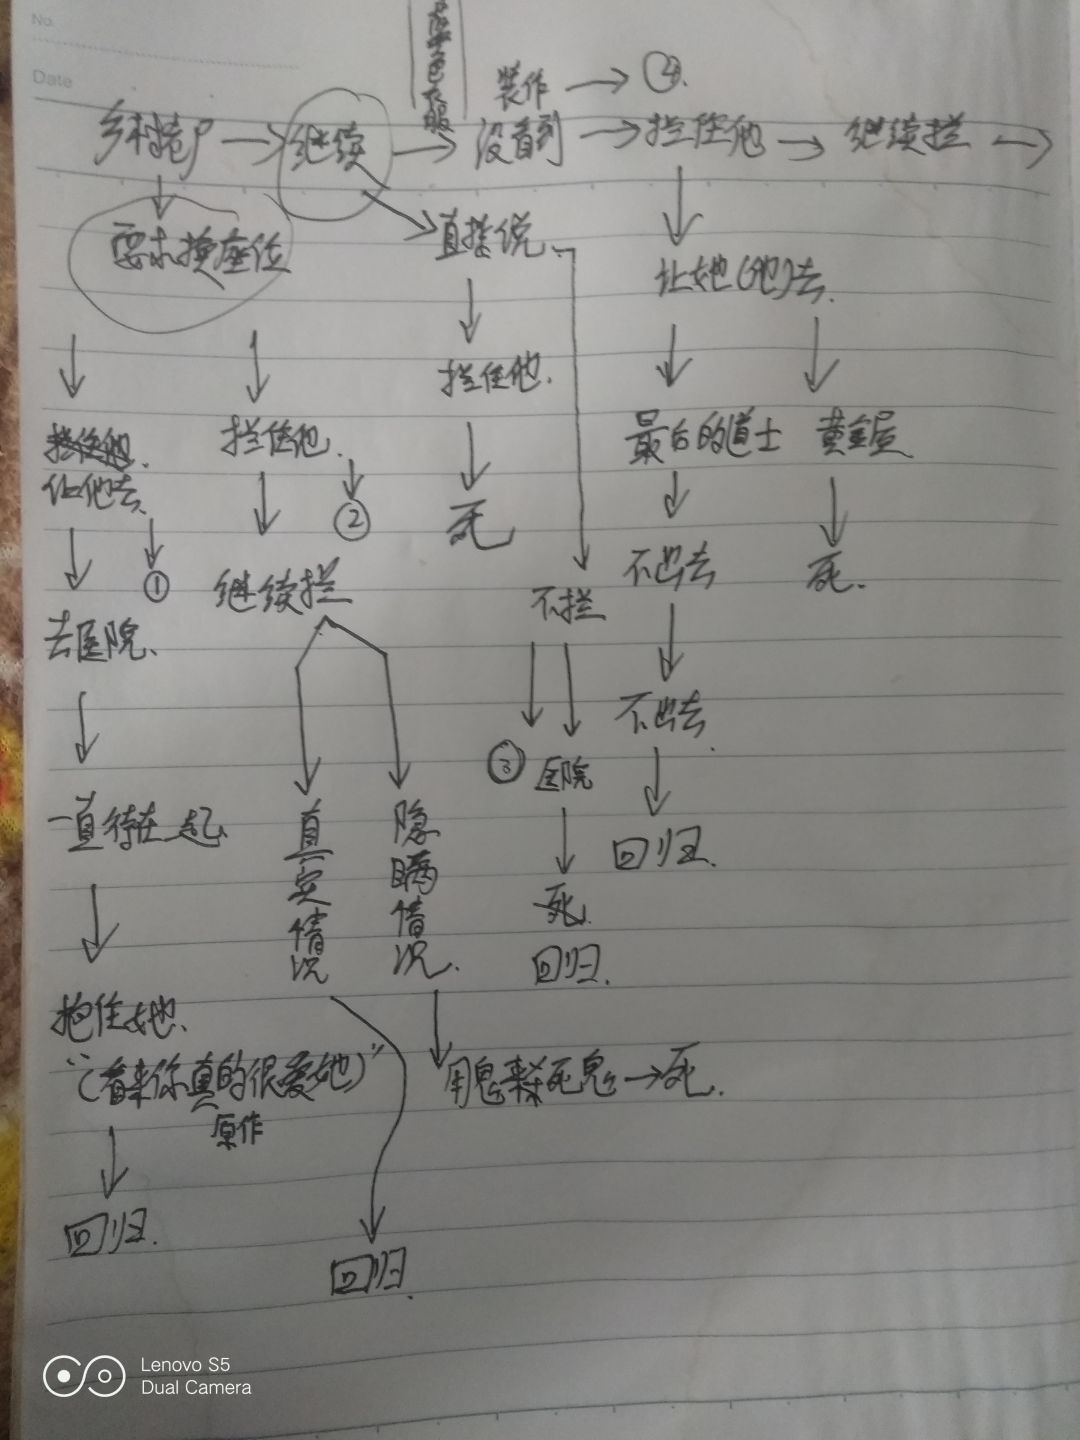 No.
Date
装作 → ④
乡村 → 继续 → 没看到 → 拦住他 → 继续拦 →
要求换座位
直接说
让她(他)去
拦住他.
最后的道士
黄金屋
拦住他.
拦住他.
让他去
②
死
①
继续拦
不拦
不出去
死.
去医院.
不出去.
③
医院
一直待在一起
真实情况
隐瞒情况.
回归.
死.
回归.
抱住她.
“(看来你真的很爱她)”
原作
用鬼来杀死鬼 → 死.
回归.
回归.
Lenovo S5
Dual Camera